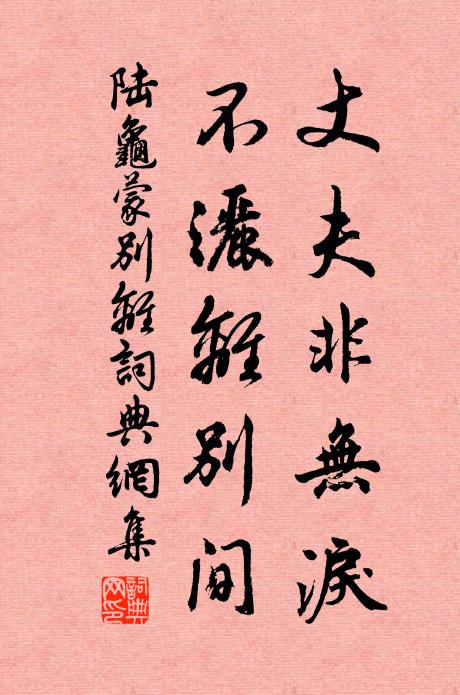 丈夫非無淚
不灑離別間
陸龜蒙別離詞典網集
詞典網印